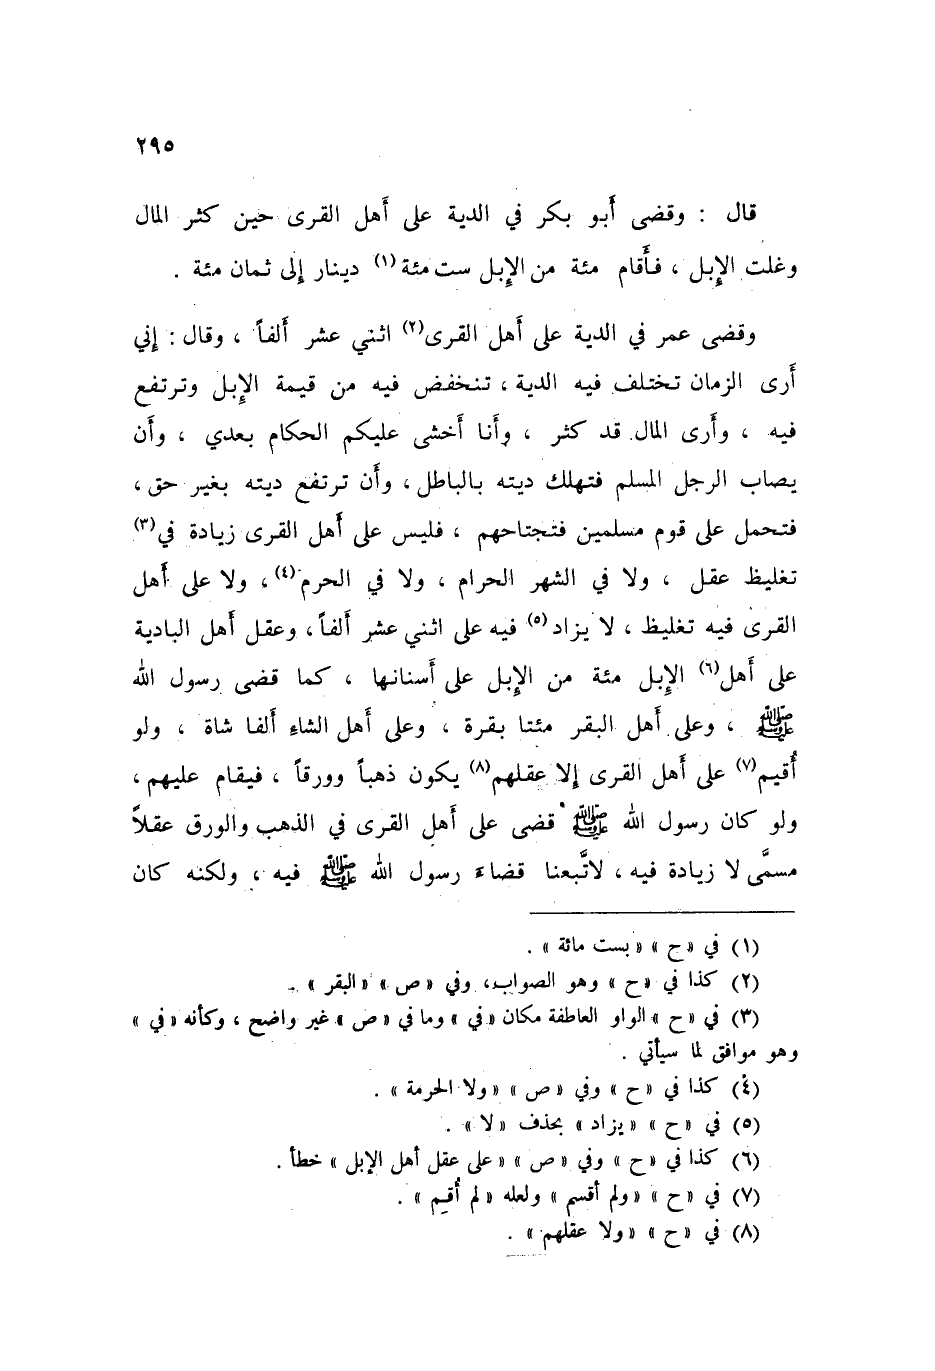 ٢٩٥
قال : وقضى أبو بكر في الدية على أهل القرى حين كثر المال
وغلت الإبل ، فأقام مئة من الإبل ست مئة (١) دينار إلى ثمان مئة .
وقضى عمر في الدية على أهل القرى (٢) اثني عشر ألفاً ، وقال : إني
أرى الزمان تختلف فيه الدية ، تنخفض فيه من قيمة الإبل وترتفع
فيه ، وأرى المال قد كثر ، وأنا أخشى عليكم الحكام بعدي ، وأن
يصاب الرجل المسلم فتهلك ديته بالباطل ، وأن ترتفع ديته بغير حق ،
فتحمل على قوم مسلمين فتجتاحهم ، فليس على أهل القرى زيادة في (٣)
تغليظ عقل ، ولا في الشهر الحرام ، ولا في الحرم (٤) ، ولا على أهل
القرى فيه تغليظ ، لا يزاد (٥) فيه على اثني عشر ألفاً ، وعقل أهل البادية
على أهل (٦) الإبل مئة من الإبل على أسنانها ، كما قضى رسول الله
ﷺ ، وعلى أهل البقر مئتا بقرة ، وعلى أهل الشاء ألفا شاة ، ولو
أُقيم (٧) على أهل القرى إلا عقلهم (٨) يكون ذهباً وورقاً ، فيقام عليهم ،
ولو كان رسول الله ﷺ قضى على أهل القرى في الذهب والورق عقلاً
مسمَّى لا زيادة فيه ، لاتَّبعنا قضاء رسول الله ﷺ فيه ، ولكنه كان
(١) في « ح » « بست مائة » .
(٢) كذا في « ح » وهو الصواب، وفي « ص » « البقر » .
(٣) في « ح » الواو العاطفة مكان « في » وما في « ص » غير واضح ، وكأنه « في »
وهو موافق لما سيأتي .
(٤) كذا في « ح » وفي « ص » « ولا الحرمة » .
(٥) في « ح » « يزاد » بحذف « لا » .
(٦) كذا في « ح » وفي « ص » « على عقل أهل الإبل » خطأ .
(٧) في « ح » « ولم أقسم » ولعله « لم أُقِم » .
(٨) في « ح » « ولا عقلهم » .